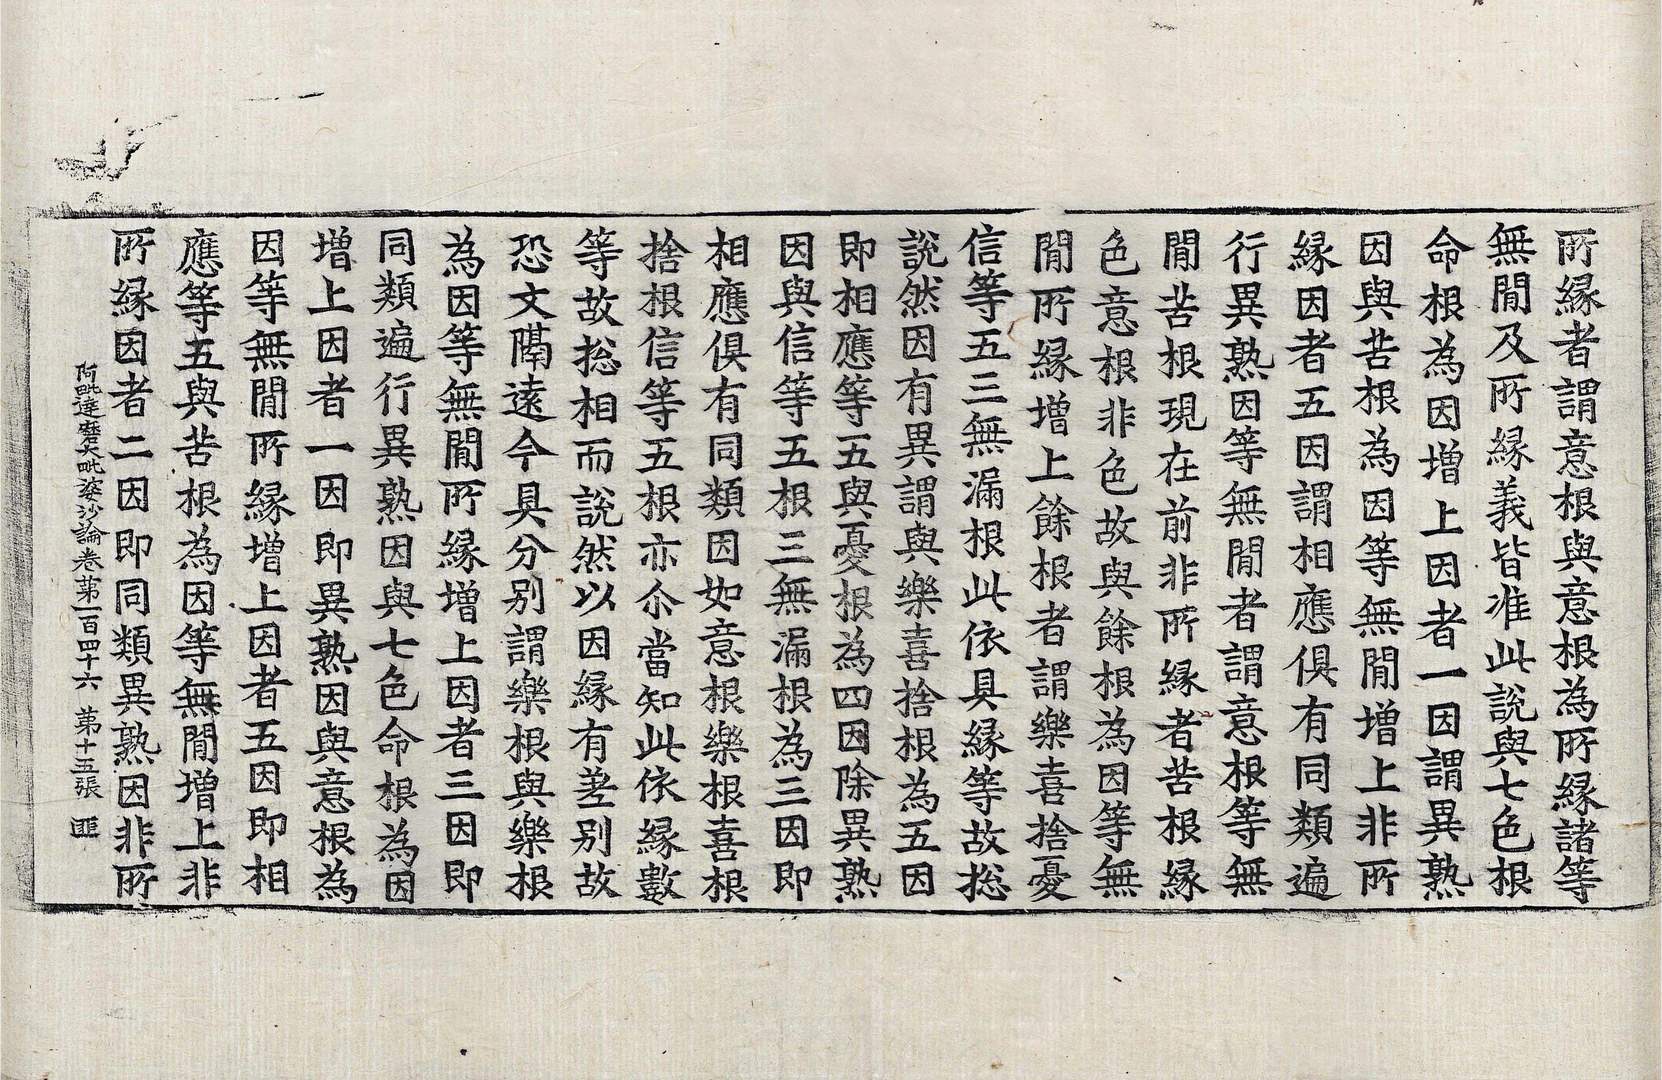 所縁者謂意根與意根為所縁諸等
無閒及所縁義皆准此說與七色根
命根為因增上因者一因謂異熟
因與苦根為因等無閒增上非所
縁因者五因謂相應俱有同類遍
行異熟因等無閒者謂意根等無
閒苦根現在前非所縁者苦根縁
色意根非色故與餘根為因等無
閒所縁增上餘根者謂樂喜捨憂
信等五三無漏根此依具縁等故捴
說然因有異謂與樂喜捨根為五因
即相應等五與憂根為四因除異熟
因與信等五根三無漏根為三因即
相應俱有同類因如意根樂根喜根
捨根信等五根亦尒當知此依縁數
等故捴相而說然以因縁有差別故
恐文隔遠今具分別謂樂根與樂根
為因等無閒所縁增上因者三因即
同類遍行異熟因與七色命根為因
增上因者一因即異熟因與意根為
因等無閒所縁增上因者五因即相
應等五與苦根為因等無閒增上非
所縁因者二因即同類異熟因非所
阿毗達磨大毗婆沙論卷第一百四十六 第十五張 匪